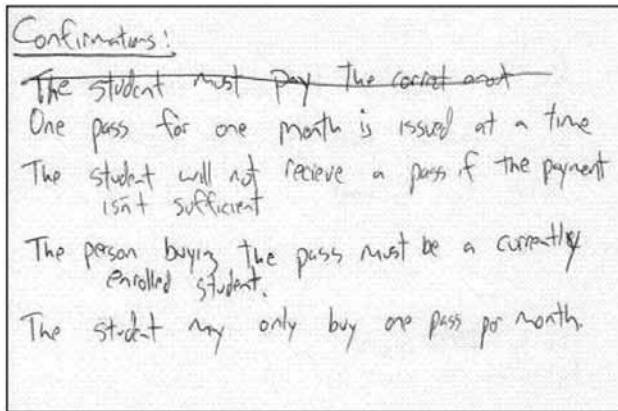 Confirmations:
The student must pay the correct amot
One pass for one month is issued at a time
The student will not recieve a pass if the payment
isn't sufficient
The person buying the pass must be a currently
enrolled student.
The student may only buy one pass per month.